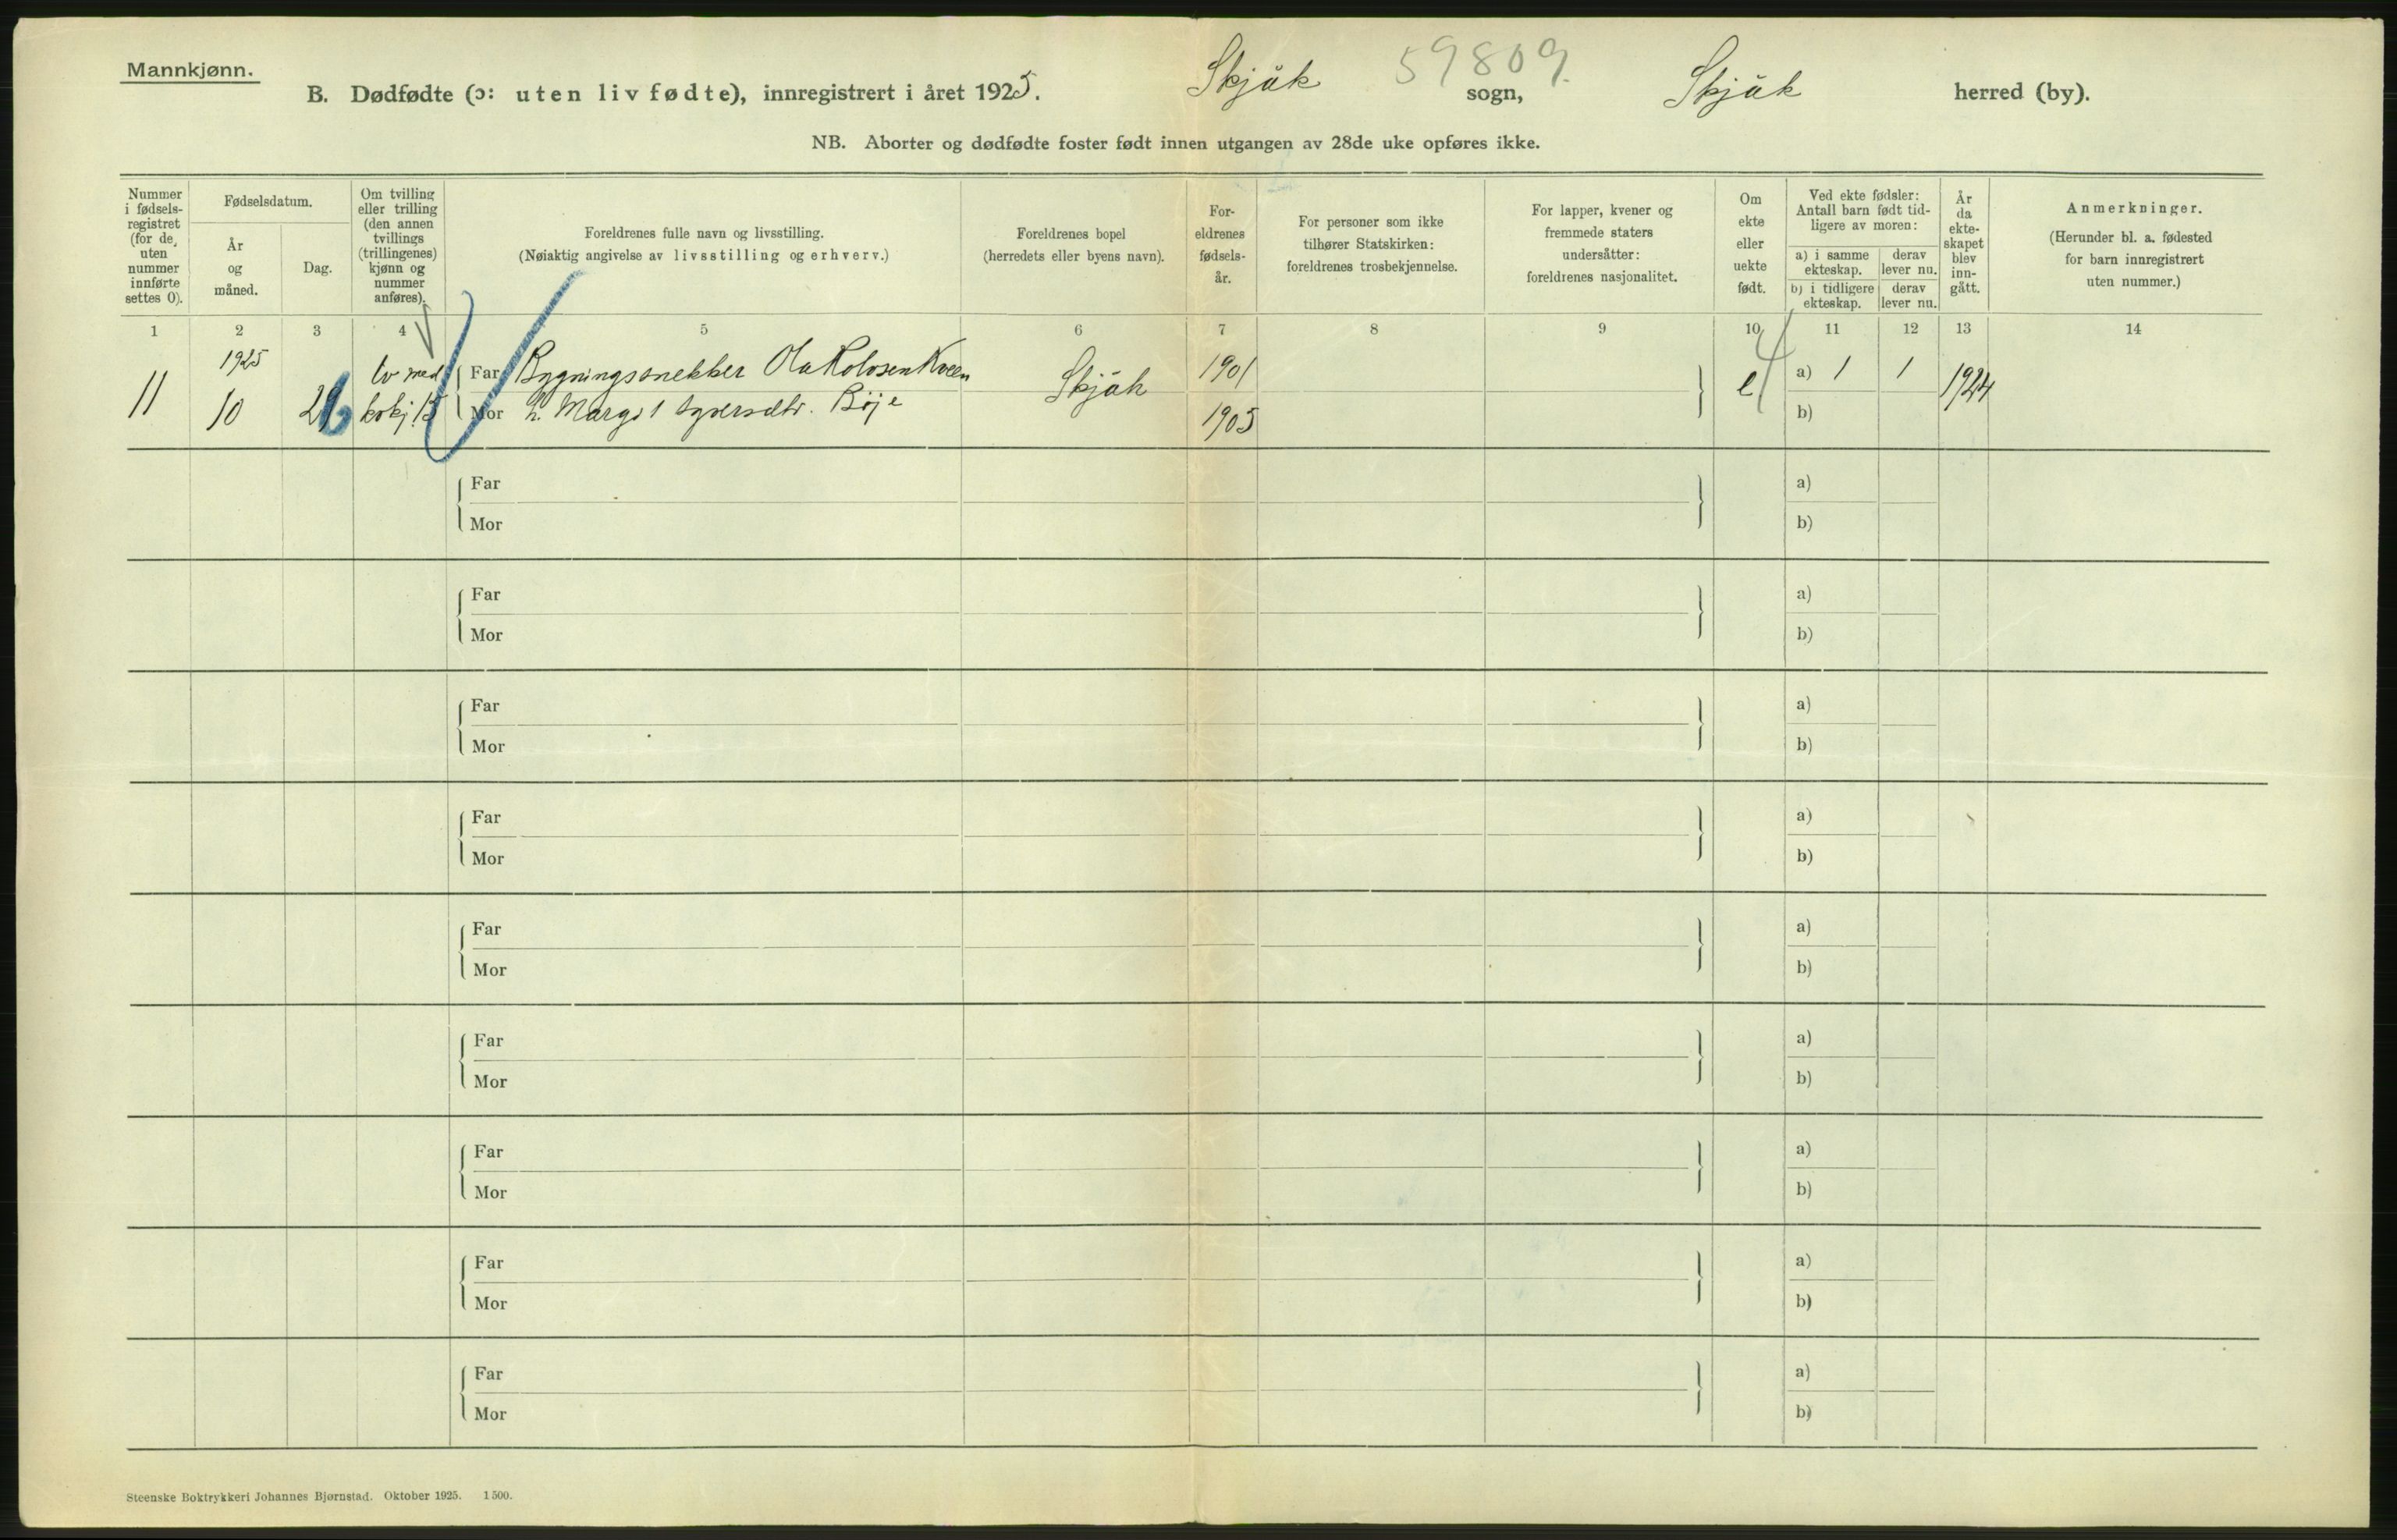 Mannkjønn.
B. Dødfødte (ɔ: uten liv fødte), innregistrert i året 1925. Skjåk sogn, Skjåk herred (by).
59809.
NB. Aborter og dødfødte foster født innen utgangen av 28de uke opføres ikke.
Nummer i fødsels-registret (for de uten nummer innførte settes 0).
Fødselsdatum.
År og måned.
Dag.
Om tvilling eller trilling (den annen tvillings (trillingenes) kjønn og nummer anføres).
Foreldrenes fulle navn og livsstilling.
(Nøiaktig angivelse av livsstilling og erhverv.)
Foreldrenes bopel
(herredets eller byens navn).
For-eldrenes fødsels-år.
For personer som ikke tilhører Statskirken: foreldrenes trosbekjennelse.
For lapper, kvener og fremmede staters undersåtter: foreldrenes nasjonalitet.
Om ekte eller uekte født.
Ved ekte fødsler: Antall barn født tid-ligere av moren:
a) i samme ekteskap.
derav lever nu.
b) i tidligere ekteskap.
derav lever nu.
År da ekte-skapet blev inn-gått.
Anmerkninger.
(Herunder bl. a. fødested for barn innregistrert uten nummer.)
1 2 3 4 5 6 7 8 9 10 11 12 13 14
1925 tv med Far Bygningssnekker Ola Kveen 1901 a) 1 1
11 10 Skjåk e 1924
Mor h. Margit Bøje 1905 b)
Far a)
Mor b)
Far a)
Mor b)
Far a)
Mor b)
Far a)
Mor b)
Far a)
Mor b)
Far a)
Mor b)
Far a)
Mor b)
Far a)
Mor b)
Far a)
Mor b)
Steenske Boktrykkeri Johannes Bjørnstad. Oktober 1925. 1500.